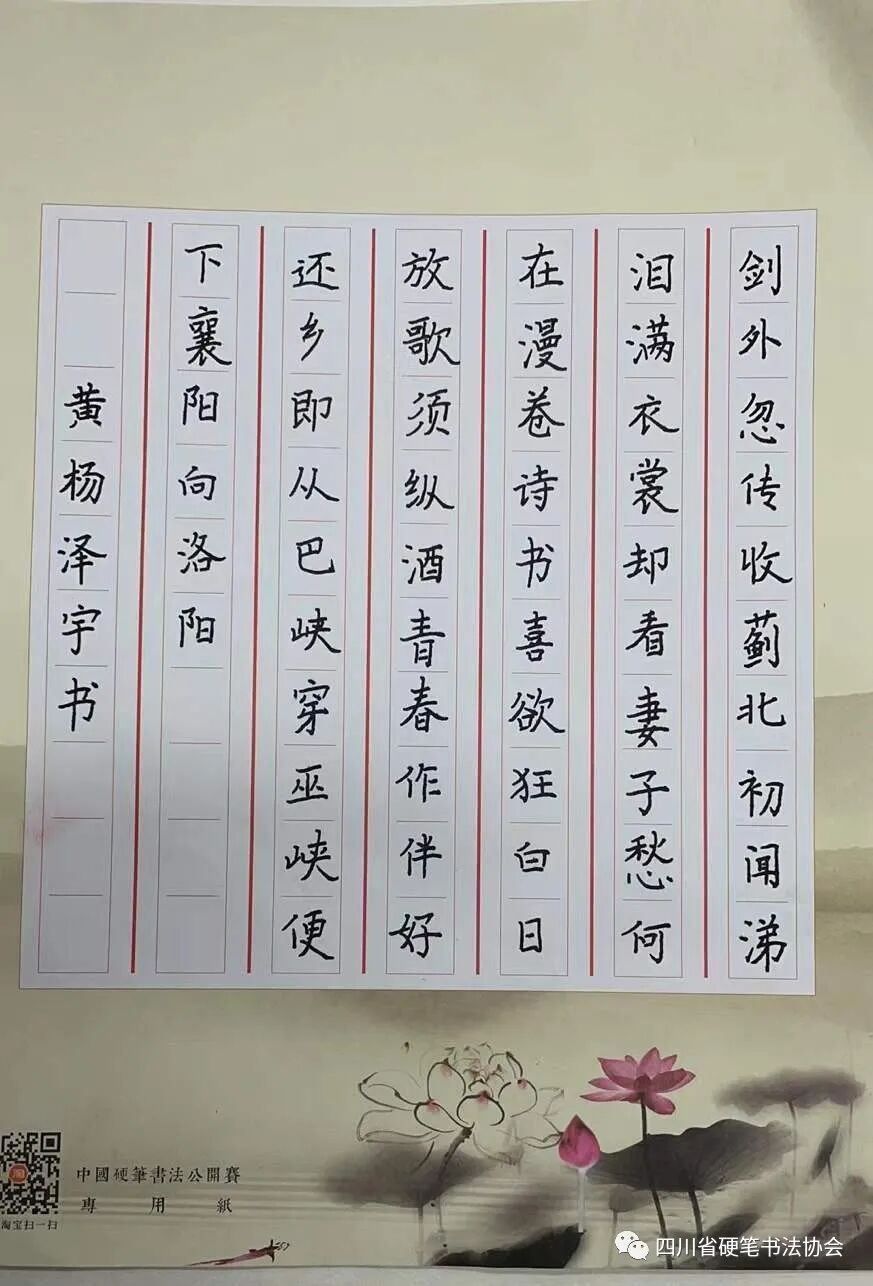 剑外忽传收蓟北初闻涕
泪满衣裳却看妻子愁何
在漫卷诗书喜欲狂白日
放歌须纵酒青春作伴好
还乡即从巴峡穿巫峡便
下襄阳向洛阳
黄杨泽宇书
中國硬筆書法公開賽
專用紙
淘宝扫一扫
四川省硬笔书法协会